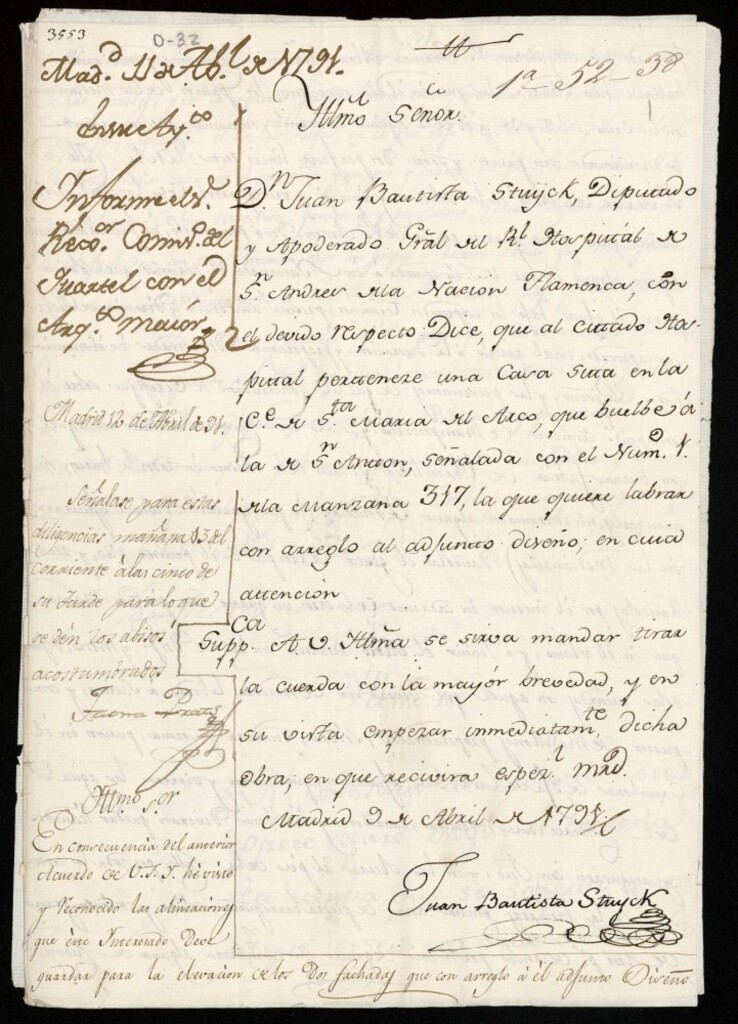 3553
O-32
Mad.d 11 de Ab.l de 1791.
1a 52-38
En su Ay.to
Informe el S.r
Rexidor Comis.o del
Quartel con el
Arq.to maior
Madrid 12 de Abril de 91.
Señalase para estas
diligencias mañana 13 del
corriente à las cinco de
su tarde para lo que
se dèn los abisos
acostumbrados
Illmo S.or
En consecuencia del anterior
Acuerdo de V.S.Y. hè visto
y reconocido las alineaciones
que este Interesado deve
guardar para la elevacion de los dos fachadas que con arreglo à èl adjunto Diseño
Illmo Señor.
D.n Juan Bautista Stuyck, Diputado
y Apoderado Gral del Rl. Hospital de
S.n Andres de la Nacion Flamenca, con
el devido respecto Dice, que al cittado Hos-
pittal pertteneze una Casa sitta en la
C.e de S.ta Maria del Arco, que buelbe à
la de S.n Antton, señalada con el Num.o 1.
de la Manzana 317, la que quiere labrar
con arreglo al adjunto diseño; en cuia
attención
Supp.ca A V. Illma se sirva mandar tirar
la cuerda con la mayór brevedad, y en
su vista empezar inmediatam.te dicha
obra; en que recivira esper.l mrd.
Madrid 9 de Abril de 1791.
Juan Bautista Stuyck